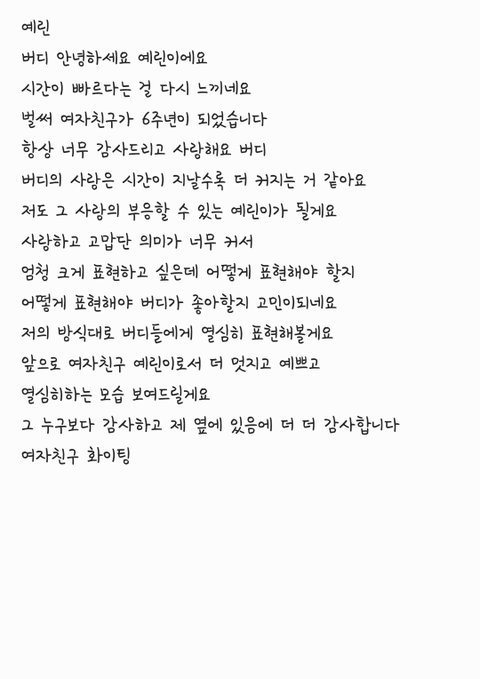 예린
버디 안녕하세요 예린이에요
시간이 빠르다는 걸 다시 느끼네요
벌써 여자친구가 6주년이 되었습니다
항상 너무 감사드리고 사랑해요 버디
버디의 사랑은 시간이 지날수록 더 커지는 거 같아요
저도 그 사랑의 부응할 수 있는 예린이가 될게요
사랑하고 고맙단 의미가 너무 커서
엄청 크게 표현하고 싶은데 어떻게 표현해야 할지
어떻게 표현해야 버디가 좋아할지 고민이되네요
저의 방식대로 버디들에게 열심히 표현해볼게요
앞으로 여자친구 예린이로서 더 멋지고 예쁘고
열심히하는 모습 보여드릴게요
그 누구보다 감사하고 제 옆에 있음에 더 더 감사합니다
여자친구 화이팅